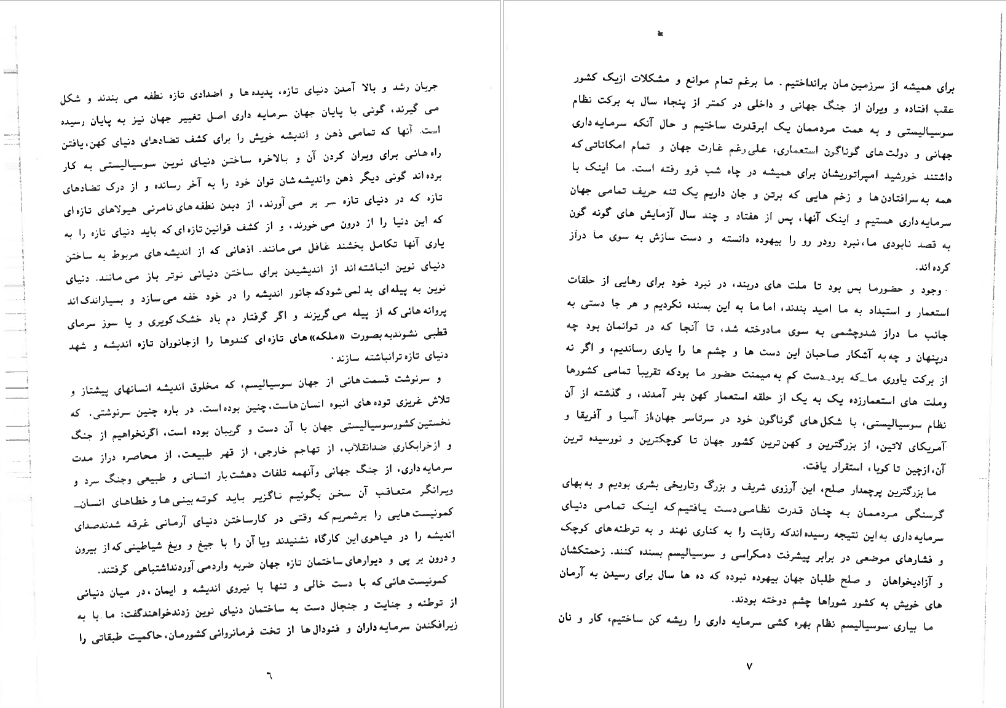 جریان رشد و بالا آمدن دنیای تازه، پدیده ها و اضدادی تازه نطفه می بندند و شکل
می گیرند، گوئی با پایان جهان سرمایه داری اصل تغییر جهان نیز به پایان رسیده
است. آنها که تمامی ذهن و اندیشه خویش را برای کشف تضادهای دنیای کهن، یافتن
راه هائی برای ویران کردن آن و بالاخره ساختن دنیای نوین سوسیالیستی به کار
برده اند گوئی دیگر ذهن واندیشه شان توان خود را به آخر رسانده و از درک تضادهای
تازه که در دنیای تازه سر بر می آورند، از دیدن نطفه های نامرئی هیولاهای تازه ای
که این دنیا را از درون می خورند، و از کشف قوانین تازه ای که باید دنیای تازه را به
یاری آنها تکامل بخشند غافل می مانند. اذهانی که از اندیشه های مربوط به ساختن
دنیای نوین انباشته اند از اندیشیدن برای ساختن دنیائی نوتر باز می مانند. دنیای
نوین به پیله ای بدل می شود که جانور اندیشه را در خود خفه می سازد و بسیاراندک اند
پروانه هائی که از پیله می گریزند و اگر گرفتار دم باد خشک کویری و یا سوز سرمای
قطبی نشوند به صورت «ملکه» های تازه ای کندوها را ازجانوران تازه اندیشه و شهد
دنیای تازه ترانباشته سازند.
و سرنوشت قسمت هائی از جهان سوسیالیسم، که مخلوق اندیشه انسانهای پیشتاز و
تلاش غریزی توده های انبوه انسان هاست، چنین بوده است. در باره چنین سرنوشتی. که
نخستین کشورسوسیالیستی جهان با آن دست و گریبان بوده است، اگرنخواهیم از جنگ
و ازخرابکاری ضدانقلاب، از تهاجم خارجی، از قهر طبیعت، از محاصره دراز مدت
سرمایه داری، از جنگ جهانی وآنهمه تلفات دهشت بار انسانی و طبیعی وجنگ سرد و
ویرانگر متعاقب آن سخن بگوئیم ناگزیر باید کوته بینی ها و خطاهای انسان_
کمونیست هایی را برشمریم که وقتی در کارساختن دنیای آرمانی غرقه شدندصدای
اندیشه را در هیاهوی این کارگاه نشنیدند ویا آن را با جیغ و ویغ شیاطینی که از بیرون
و درون بر پی و دیوارهای ساختمان تازه جهان ضربه واردمی آوردنداشتباهی گرفتند.
کمونیست هائی که با دست خالی و تنها با نیروی اندیشه و ایمان، در میان دنیائی
از توطئه و جنایت و جنجال دست به ساختمان دنیای نوین زدندخواهندگفت: ما با به
زیرافکندن سرمایه داران و فئودال ها از تخت فرمانروائی کشورمان، حاکمیت طبقاتی را
۶
برای همیشه از سرزمین مان برانداختیم. ما برغم تمام موانع و مشکلات ازیک کشور
عقب افتاده و ویران از جنگ جهانی و داخلی در کمتر از پنجاه سال به برکت نظام
سوسیالیستی و به همت مردممان یک ابرقدرت ساختیم و حال آنکه سرمایه داری
جهانی و دولت های گوناگون استعماری، علی رغم غارت جهان و تمام امکاناتی که
داشتند خورشید امپراتوریشان برای همیشه در چاه شب فرو رفته است. ما اینک با
همه به سرافتادن ها و زخم هایی که برتن و جان داریم یک تنه حریف تمامی جهان
سرمایه داری هستیم و اینک آنها، پس از هفتاد و چند سال آزمایش های گونه گون
به قصد نابودی ما، نبرد رودر رو را بیهوده دانسته و دست سازش به سوی ما دراز
کرده اند.
وجود و حضورما بس بود تا ملت های دربند، در نبرد خود برای رهایی از حلقات
استعمار و استبداد به ما امید بندند، اما ما به این بسنده نکردیم و هر جا دستی به
جانب ما دراز شدوچشمی به سوی مادوخته شد، تا آنجا که در توانمان بود چه
درپنهان و چه به آشکار صاحبان این دست ها و چشم ها را یاری رساندیم، و اگر نه
از برکت یاوری ما_که بود_دست کم به میمنت حضور ما بودکه تقریباً تمامی کشورها
وملت های استعمارزده یک به یک از حلقه استعمار کهن بدر آمدند، و گذشته از آن
نظام سوسیالیستی، با شکل های گوناگون خود در سرتاسر جهان، از آسیا و آفریقا و
آمریکای لاتین، از بزرگترین و کهن ترین کشور جهان تا کوچکترین و نورسیده ترین
آن، ازچین تا کوبا، استقرار یافت.
ما بزرگترین پرچمدار صلح، این آرزوی شریف و بزرگ وتاریخی بشری بودیم و به بهای
گرسنگی مردممان به چنان قدرت نظامی دست یافتیم که اینک تمامی دنیای
سرمایه داری به این نتیجه رسیده اندکه رقابت را به کناری نهند و به توطئه های کوچک
و فشارهای موضعی در برابر پیشرفت دمکراسی و سوسیالیسم بسنده کنند. زحمتکشان
و آزادیخواهان و صلح طلبان جهان بیهوده نبوده که ده ها سال برای رسیدن به آرمان
های خویش به کشور شوراها چشم دوخته بودند.
ما بیاری سوسیالیسم نظام بهره کشی سرمایه داری را ریشه کن ساختیم، کار و نان
۷